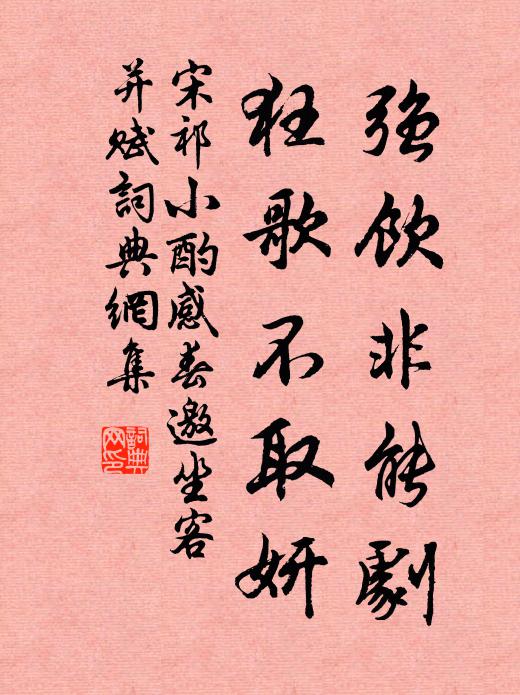 強飲非能劇
狂歌不取妍
宋祁小酌感春邀坐客
并賦詞典網集
詞典
网印